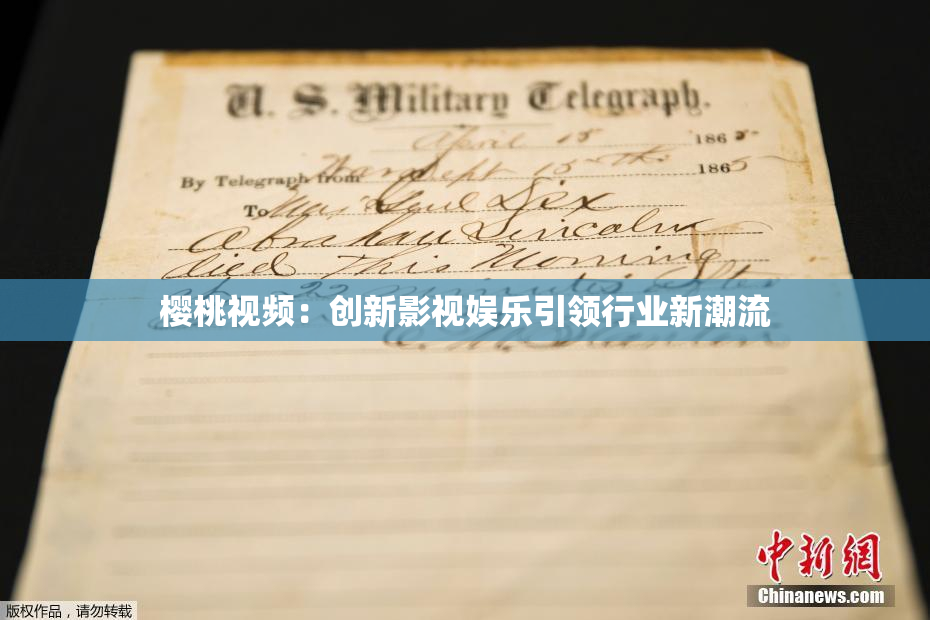 U. S. Military Telegraph.
April 15 1865
By Telegraph from War Dept 15th 1865
To Maj Genl Dix
Abraham Lincoln
died This Morning
22 minutes after
樱桃视频：创新影视娱乐引领行业新潮流
E. M. Stanton
中新網
Chinanews.com
版权作品，请勿转载